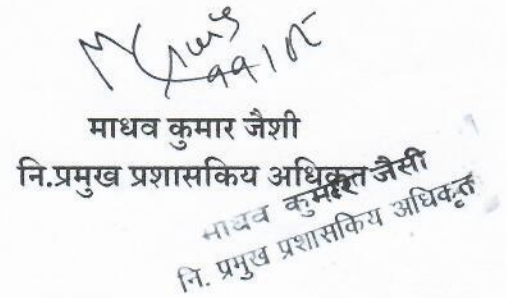 माधव कुमार जैशी
नि.प्रमुख प्रशासकिय अधिकृत
माधव कुमार जैसी
नि. प्रमुख प्रशासकिय अधिकृत